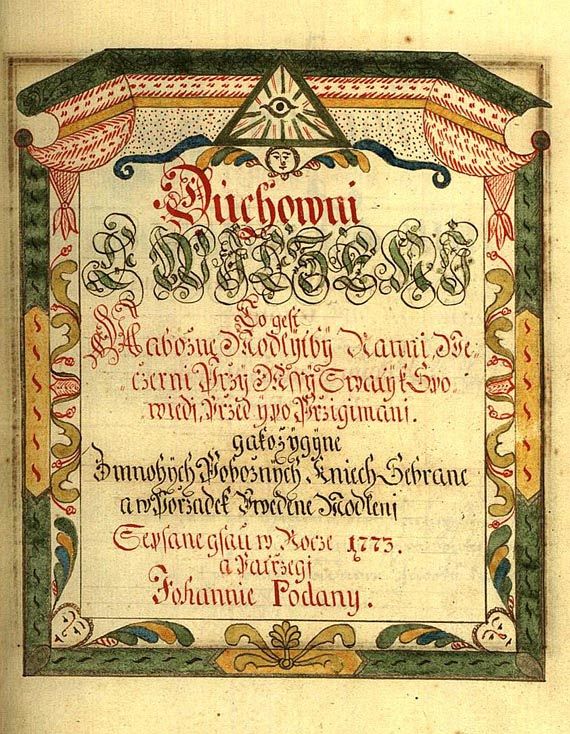 Duchowni
KWICŽENI
To gest
Nabožne Modlytby Ranni, We-
czerni Przy Mssy Swaty k Spo
wiedi, Przed y po Przigimani.
gakož ygyne
Z mnohych Pobožnych Kniech Sebrane
a w Porzadek Uwedene Modleni
Sepsane gsau w Rocze 1773.
a Patrzegi
Johannie Podany.